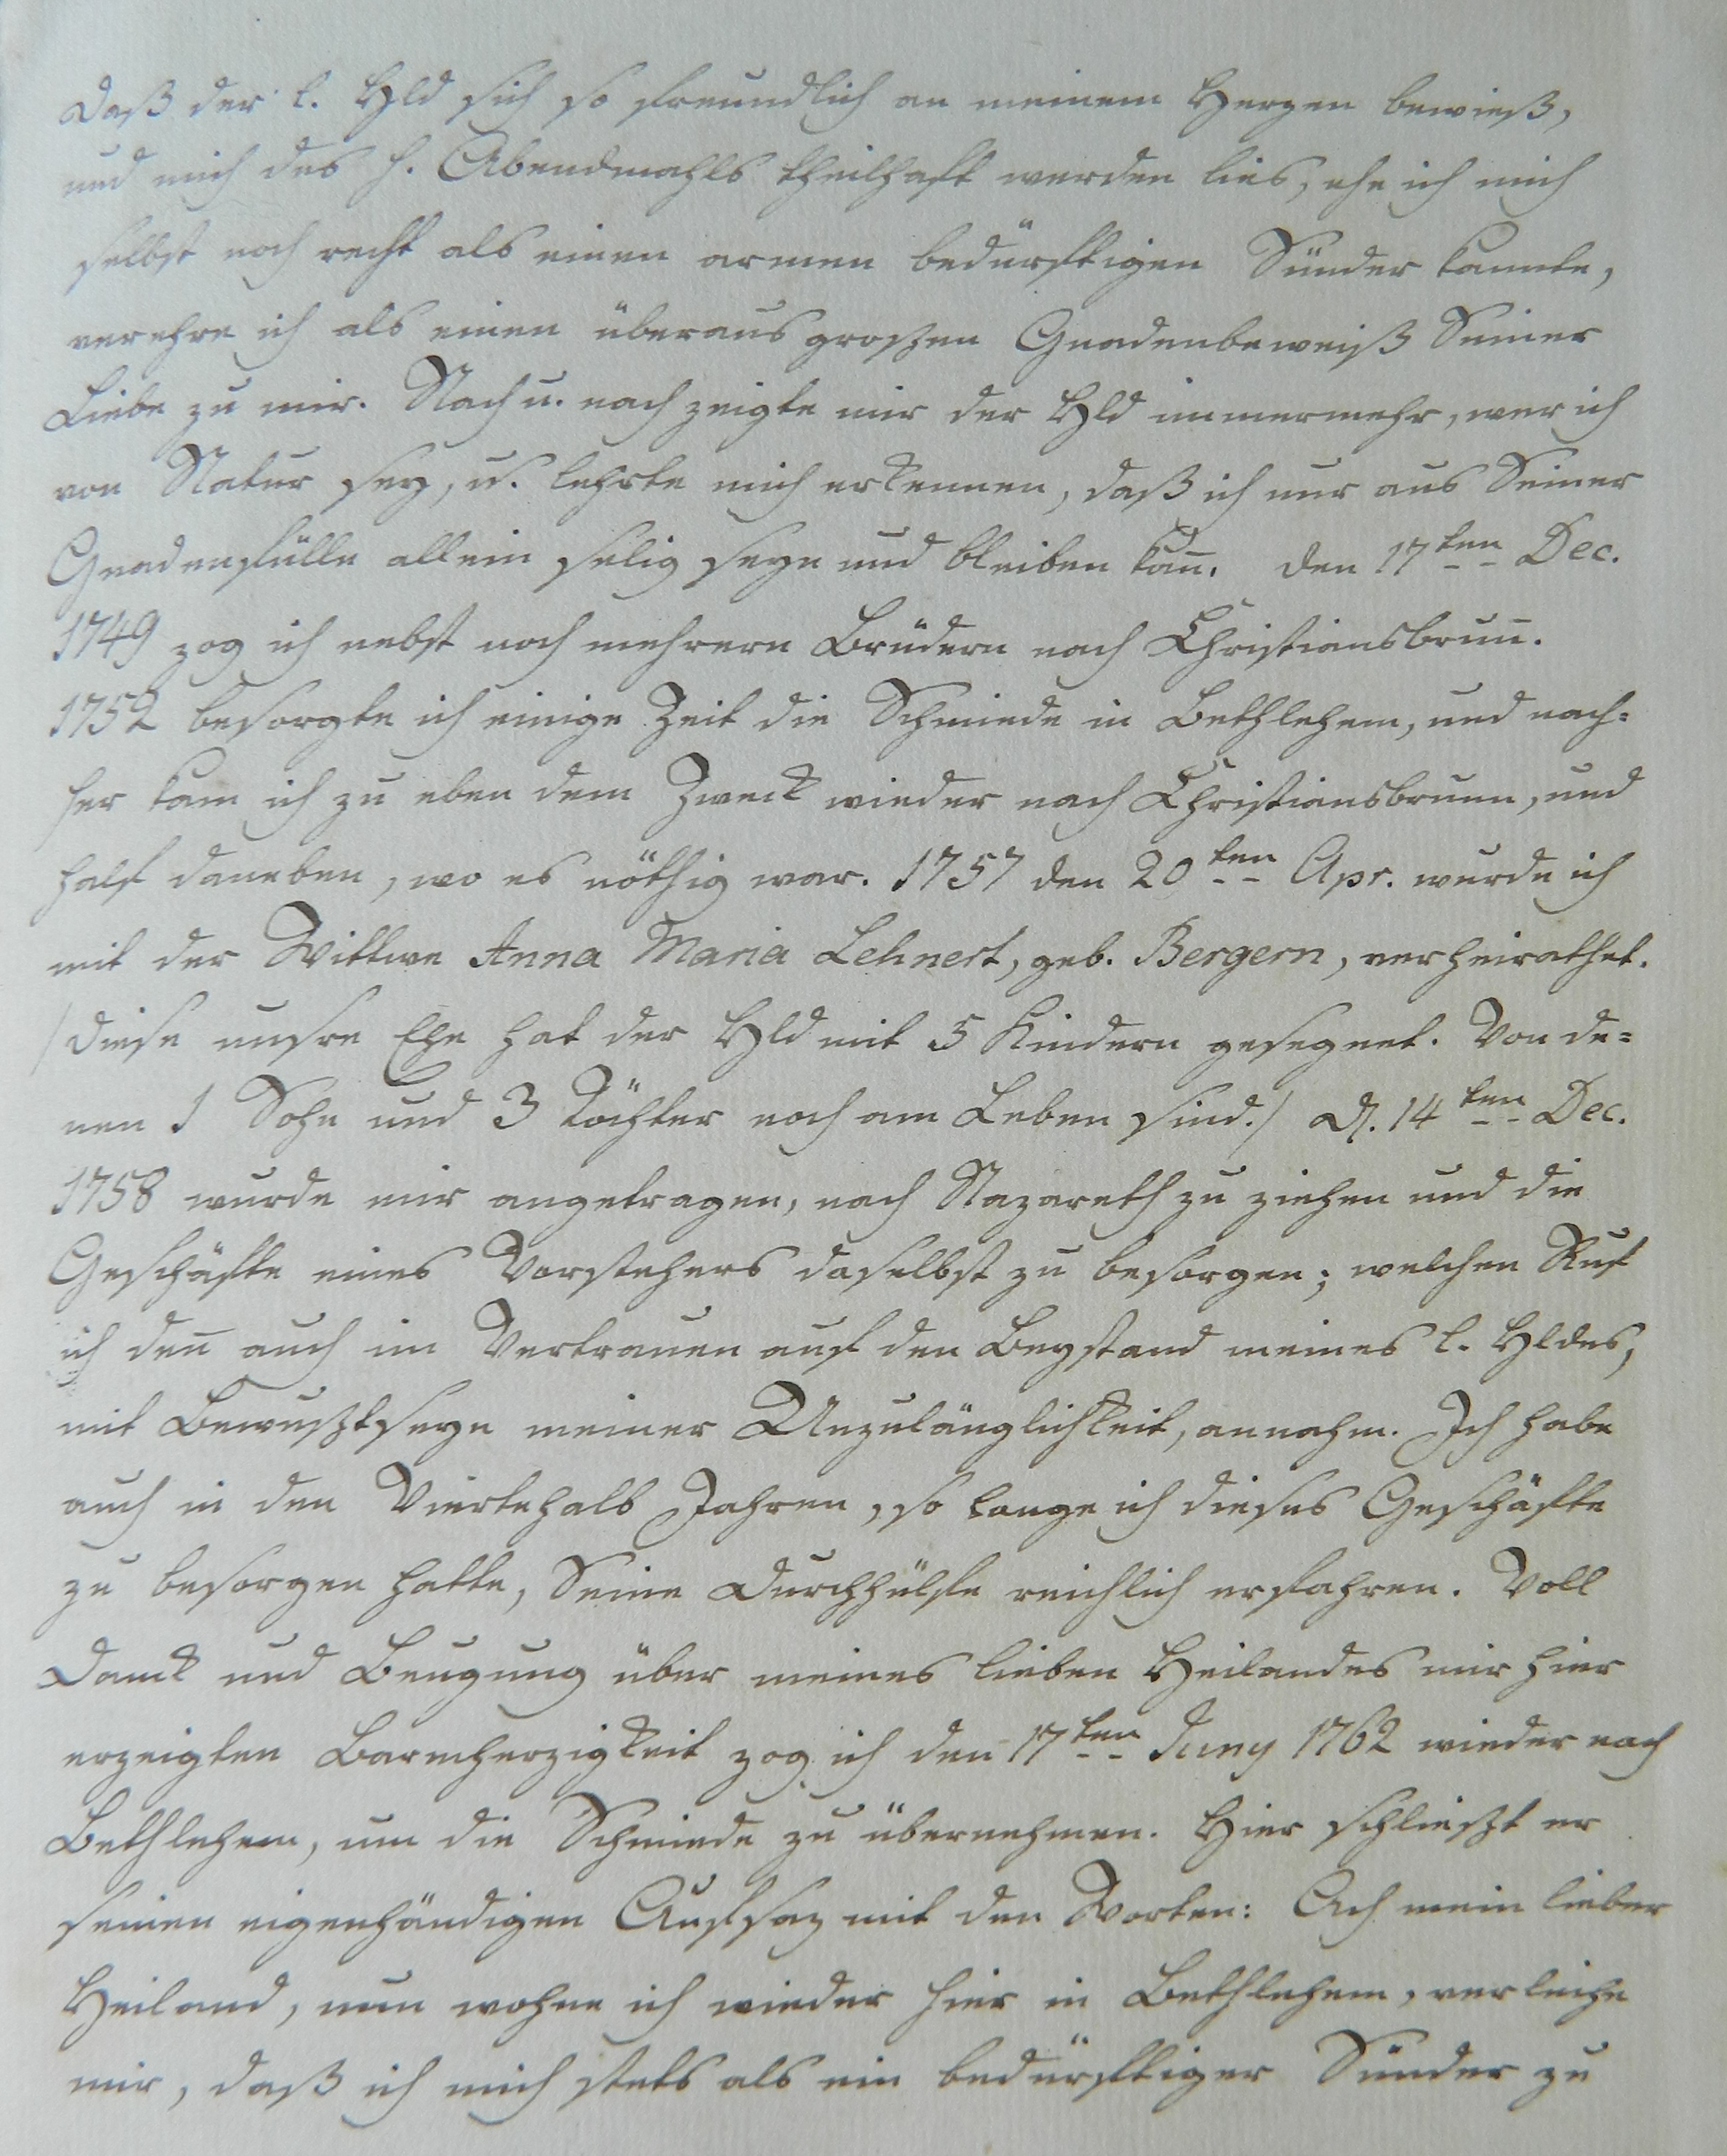 Daß der l. Hld sich so freundlich an meinem Herzen bewieß,
und mich des h. Abendmahls theilhaft werden lies, ehe ich mich
selbst noch recht als einen armen bedürftigen Sünder kannte,
verehre ich als einen überaus großen Gnadenbeweiß Seiner
Liebe zu mir. Nach u. nach zeigte mir der Hld immermehr, wer ich
von Natur sey, u. lehrte mich erkennen, daß ich nur aus Seiner
Gnadenfülle allein selig seyn und bleiben kan̄. den 17ten Dec.
1749 zog ich nebst noch mehrern Brüdern nach Christiansbrun̄.
1752 besorgte ich einige Zeit die Schmiede in Bethlehem, und nach=
her kam ich zu eben dem Zweck wieder nach Christiansbrunn, und
half daneben, wo es nöthig war. 1757 den 20ten Apr. wurde ich
mit der Wittwe Anna Maria Lehnert, geb. Bergern, verheirathet.
/ diese unsre Ehe hat der Hld mit 5 Kindern gesegnet. Von de=
nen 1 Sohn und 3 Töchter noch am Leben sind./ d. 14ten Dec.
1758 wurde mir angetragen, nach Nazareth zu ziehen und die
Geschäfte eines Vorstehers daselbst zu besorgen; welchen Ruf
ich den̄ auch im Vertrauen auf den Beystand meines l. Hldes,
mit Bewußtseyn meiner Unzulänglichkeit, annahm. Ich habe
auch in den Viertehalb Jahren, so lange ich dieses Geschäfte
zu besorgen hatte, Seine Durchhülfe reichlich erfahren. Voll
Danck und Beugung über meines lieben Heilandes mir hier
erzeigten Barmherzigkeit zog ich den 17ten Juny 1762 wieder nach
Bethlehem, um die Schmiede zu übernehmen. Hier schließt er
seinen eigenhändigen Aufsaz mit den Worten: Ach mein lieber
Heiland, nun wohne ich wieder hier in Bethlehem, verleihe
mir, daß ich mich stets als ein bedürftiger Sünder zu